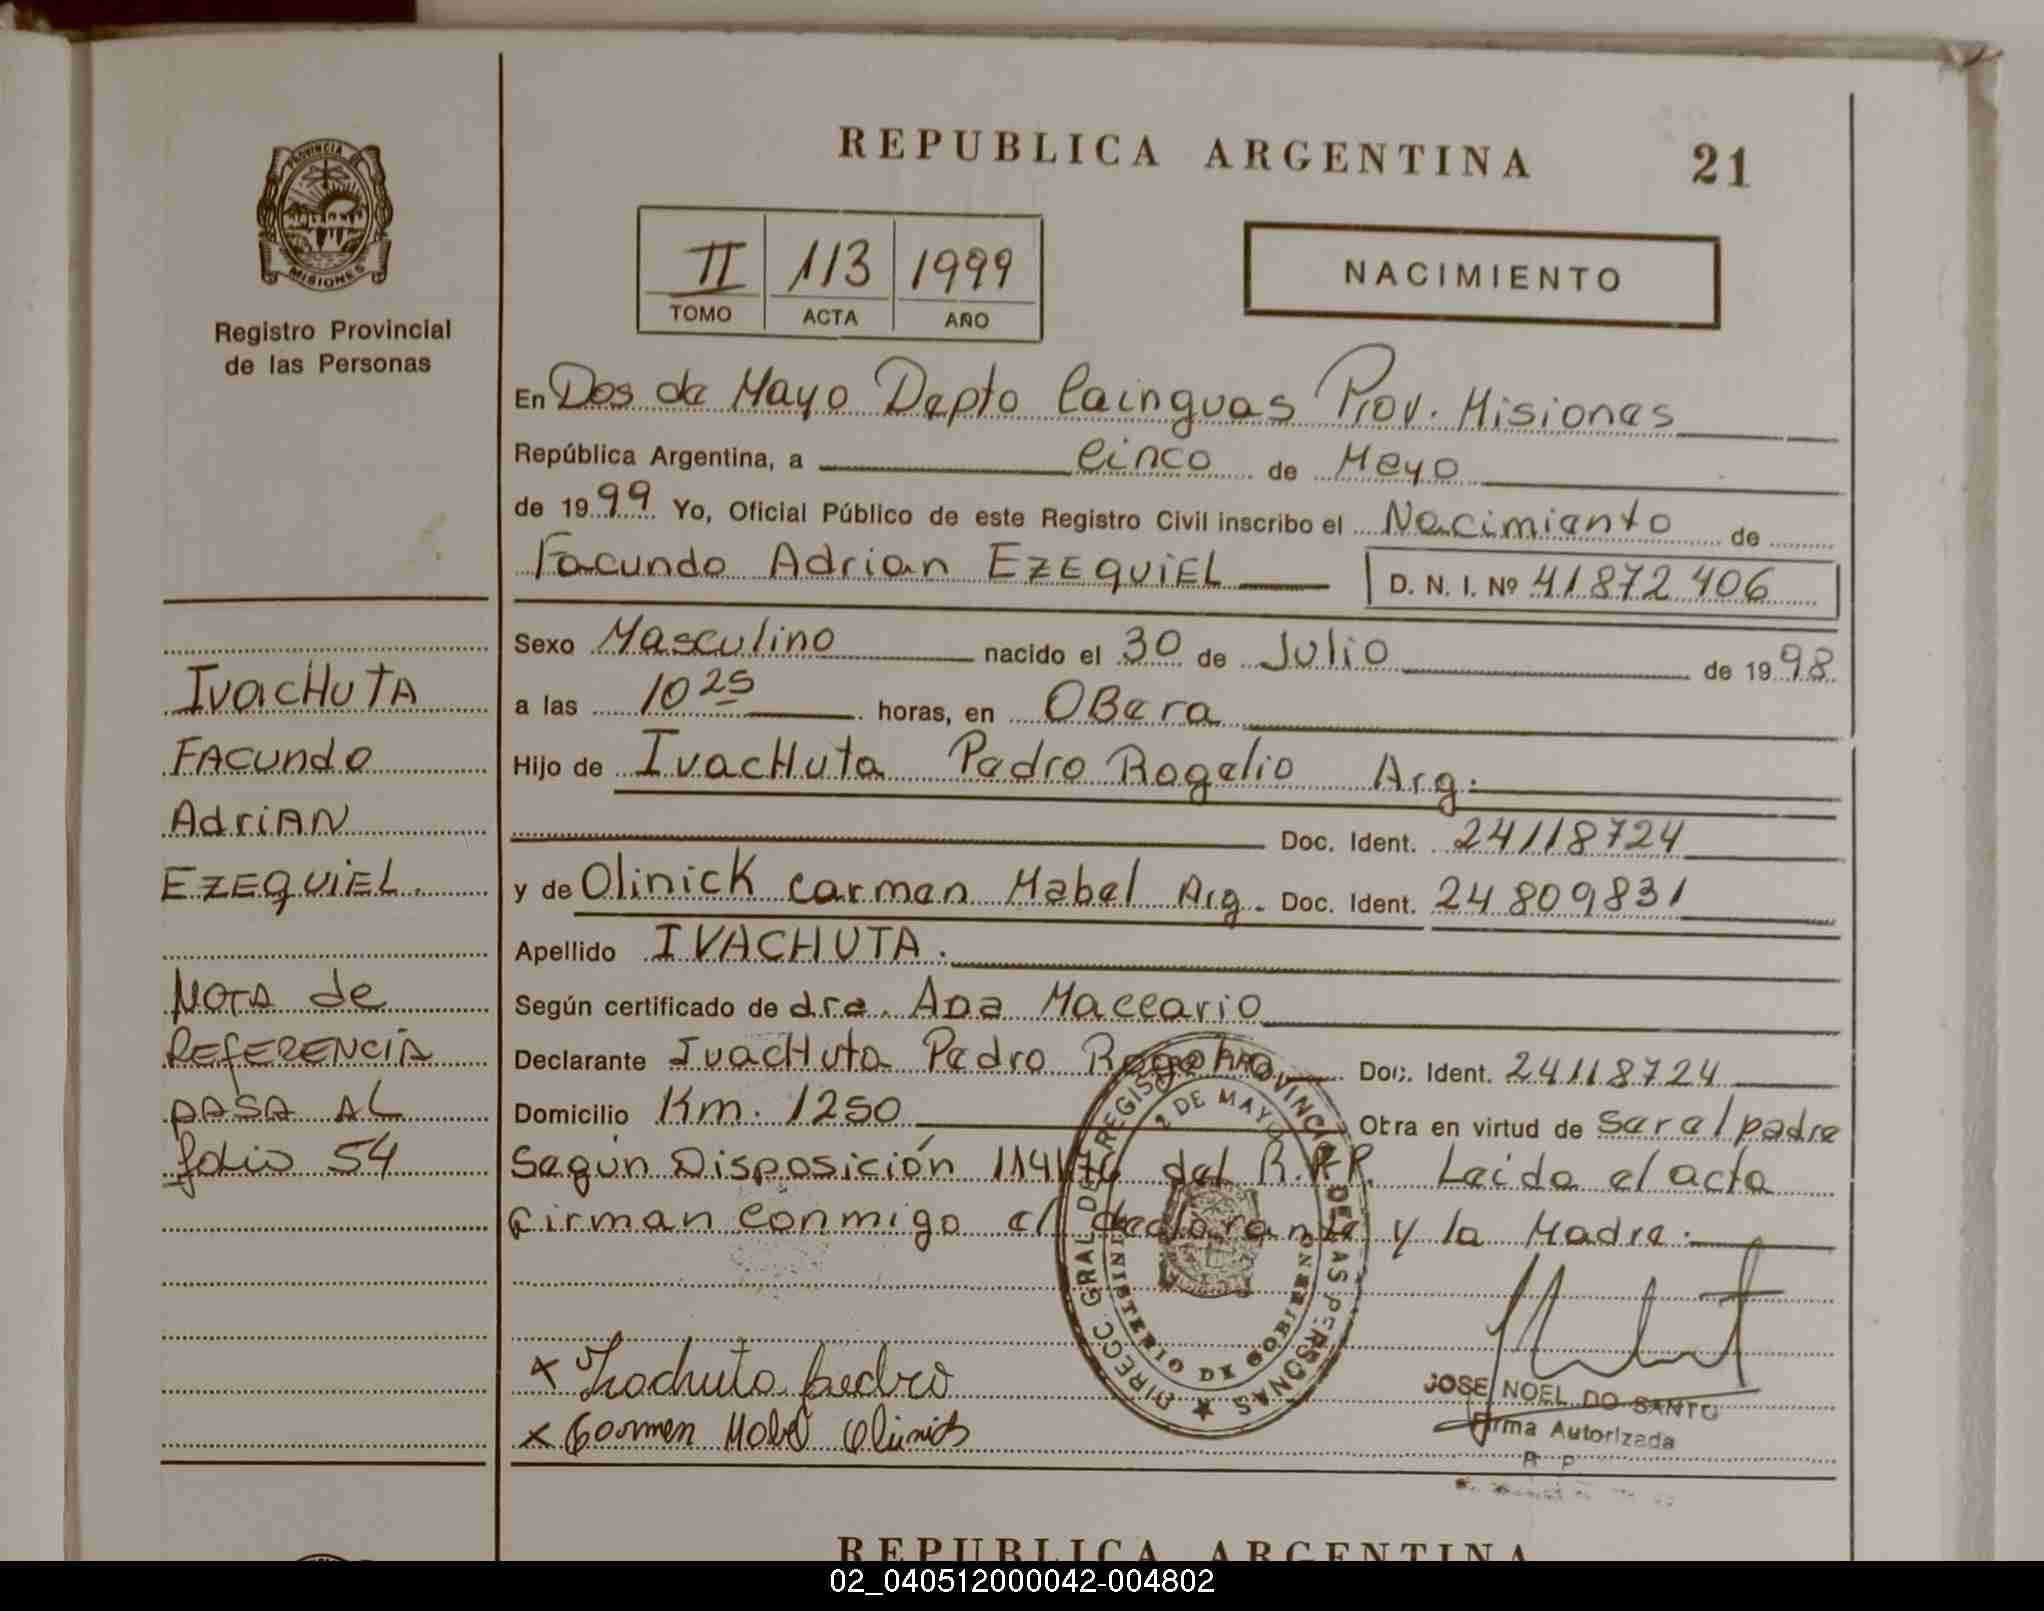 REPUBLICA ARGENTINA 21
PROVINCIA DE MISIONES
Registro Provincial
de las Personas
II 113 1999
TOMO ACTA AÑO
NACIMIENTO
En Dos de Mayo Depto Cainguas Prov. Misiones
República Argentina, a cinco de Mayo
de 1999 Yo, Oficial Público de este Registro Civil inscribo el Nacimiento de
Facundo Adrian EZEQUIEL D. N. I. Nº 41872406
Sexo Masculino nacido el 30 de Julio de 1998
a las 10 25 horas, en OBera
Hijo de IvacHuta Pedro Rogelio Arg.
Doc. Ident. 24118724
y de Olinick Carmen Mabel Arg. Doc. Ident. 24809831
Apellido IVACHUTA.
Según certificado de dra. Ana Maccario
Declarante IvacHuta Pedro Rogelio Doc. Ident. 24118724
Domicilio Km. 1250 Obra en virtud de ser el padre
Según Disposición 114/76 del R.P.P. Leida el acta
firman conmigo el declarante y la Madre.
IvacHuTA
FACundo
AdriAN
EZEQUIEL.
NOTA de
REFERENCIA
PASA AL
folio 54
DIRECC. GRAL. DEL REGISTRO PROVINCIAL DE LAS PERSONAS
2 DE MAYO
MINISTERIO DE GOBIERNO
x Ivachuta Pedro
x Carmen Mabel Olinick
JOSE NOEL DO SANTO
Firma Autorizada
R P
REPUBLICA ARGENTINA
02_040512000042-004802